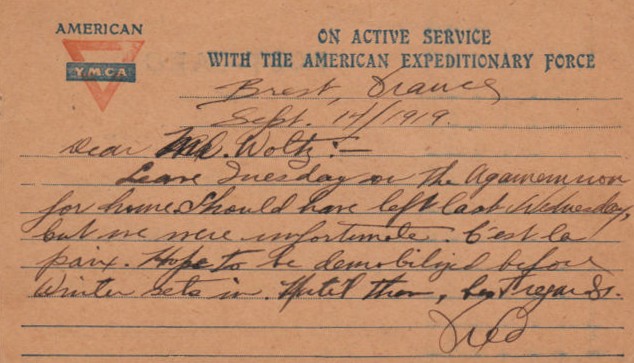 AMERICAN
YMCA
ON ACTIVE SERVICE
WITH THE AMERICAN EXPEDITIONARY FORCE
Brest, France
Sept. 14/1919.
Dear Mr. Woltz:—
Leave Tuesday on the Agamemnon
for home. Should have left last Wednesday,
but we were unfortunate. C'est la
paix. Hope to be demobilized before
Winter sets in. Until then, best regards.